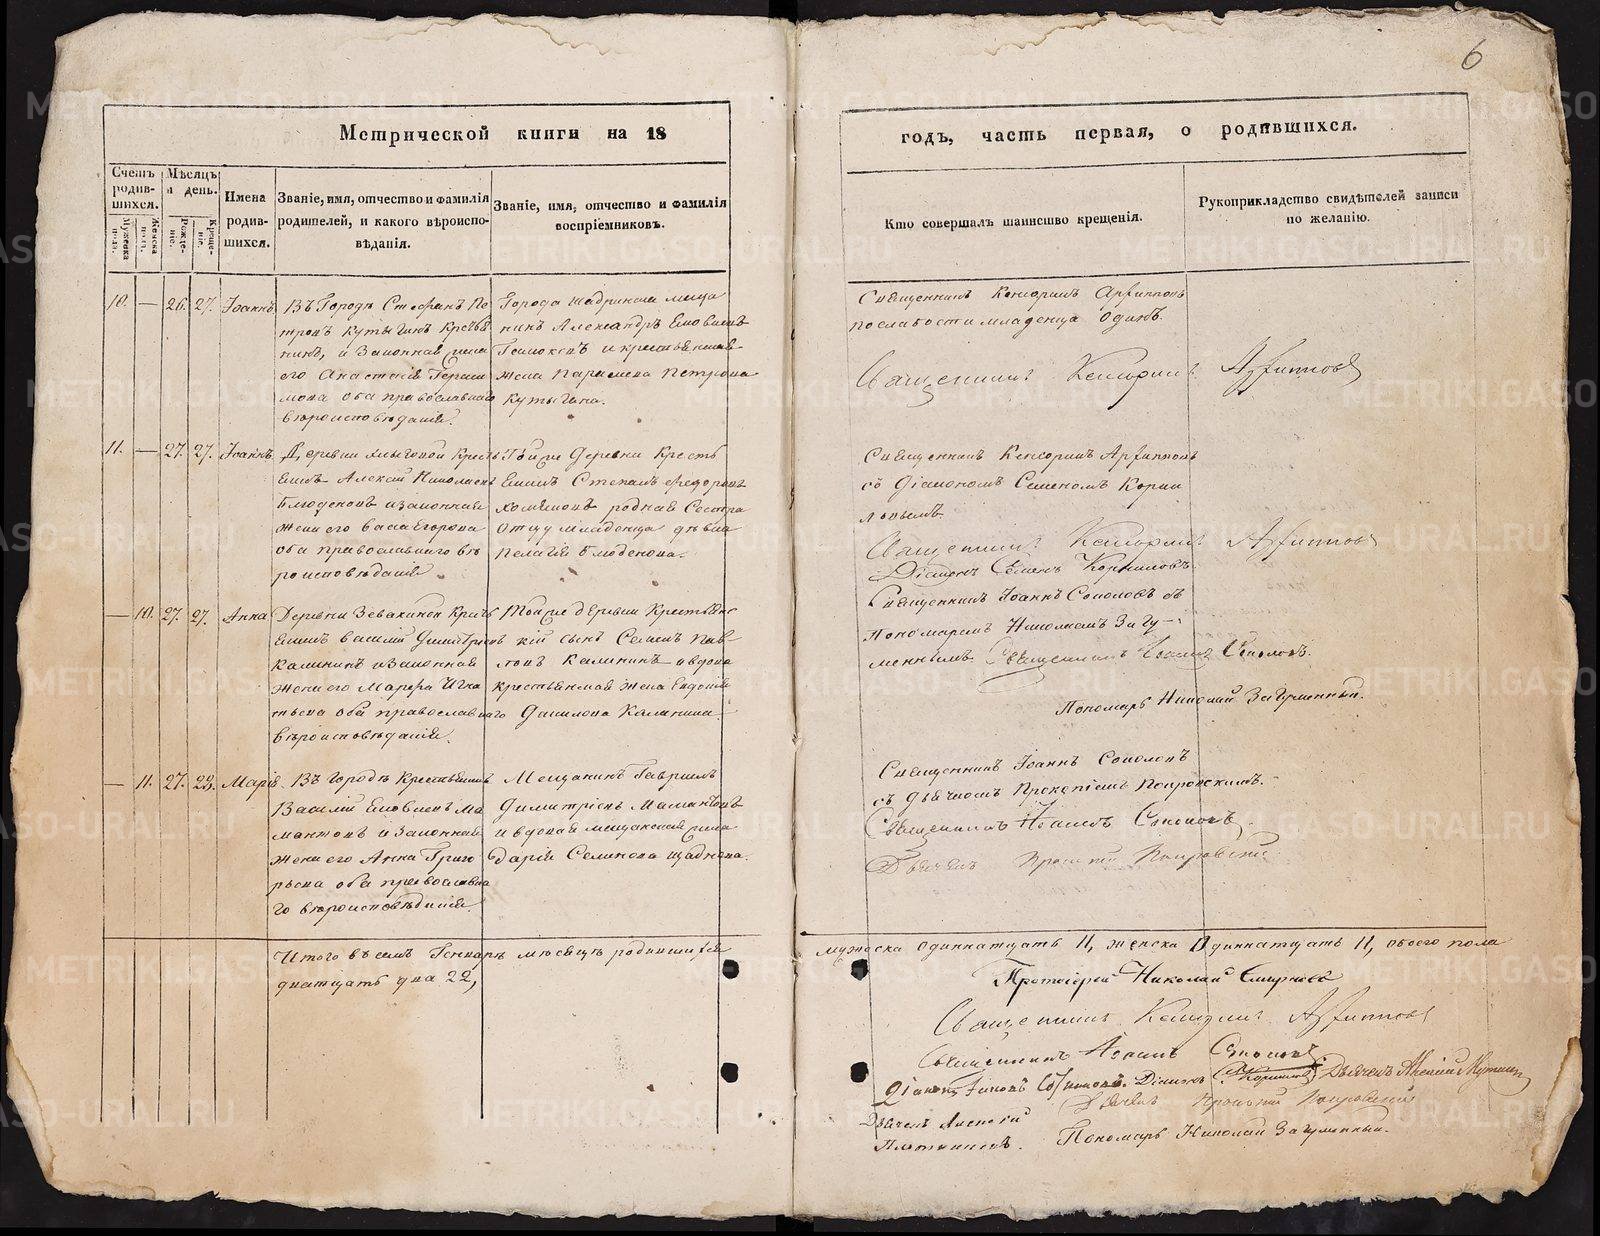 6
Метрической книги на 18
годъ, часть первая, о родившихся.
Счетъ родив-шихся.
Мужеска пола.
Женска пола.
Мѣсяцъ и день.
Рожде-ніе.
Креще-ніе.
Имена родив-шихся.
Званіе, имя, отчество и фамилія
родителей, и какого вѣроиспо-
вѣданія.
Званіе, имя, отчество и фамилія
воспріемниковъ.
Кто совершалъ таинство крещенія.
Рукоприкладство свидѣтелей записи
по желанію.
10. — 26. 27. Іоаннъ
Въ Городѣ Стефанъ Пе
тровъ Кутыгинъ Крестья
нинъ, и Законная жена
его Анастасія Гераси
мова оба православнаго
вѣроисповѣданія.
Города Шадринска меща
нинъ Александръ
и крестьянская
жена Петрова
Кутыгина.
Священникъ Кенсоринъ Арфинновъ
по слабости младенца одинъ.
Священникъ Кенсоринъ Арфинновъ
11. — 27. 27. Іоаннъ
Деревни Крестья
нинъ Алексѣй Николаевъ
и законная
жена его Васса Егорова
оба православнаго вѣ
роисповѣданія
Той же деревни Кресть
янинъ Стефанъ Федоровъ
родная Сестра
Отцу младенца дѣвка
Пелагія
Священникъ Кенсоринъ Арфинновъ
съ Діакономъ Семеномъ Корни
ловымъ
Священникъ Кенсоринъ Арфинновъ
Діаконъ Семенъ Корниловъ.
— 10. 27. 27. Анна
Деревни Зевакиной Кресть
янинъ Василій Димитріевъ
Калининъ и Законная
жена его Марфа Игна
тьева оба православнаго
вѣроисповѣданія.
Той же деревни Крестьянс
кій сынъ Семенъ Пав
ловъ Калининъ и вдова
крестьянская жена Евдокія
Данилова Калинина.
Священникъ Іоаннъ Соколовъ съ
Пономаремъ Николаемъ Загу-
меннымъ Священникъ Іоаннъ Соколовъ.
Пономарь Николай Загуменный.
— 11. 27. 28. Марія
Въ Городѣ Крестьянинъ
Василій Ма
мантовъ и Законная
жена его Анна Григо
рьева оба православна
го вѣроисповѣданія.
Мещанинъ Гавріилъ
Димитріевъ Мамантовъ
и вдовая мещанская жена
Дарія Семенова
Священникъ Іоаннъ Соколовъ
съ дьячкомъ Прокопіемъ Покровскимъ.
Священникъ Іоаннъ Соколовъ
Дьячекъ Прокопій Покровскій
Итого въ семъ Генварѣ мѣсяцѣ родившихся
дватцать два 22,
мужеска одиннатцать 11, женска Одиннатцать 11, обоего пола
Протоіерей Николай Смирновъ
Священникъ Кенсоринъ Арфинновъ
Священникъ Іоаннъ Соколовъ
Діаконъ Діаконъ Корниловъ Дьячекъ Алексій
Дьячекъ Прокопій Покровскій
Дьячекъ Алексій
Пономарь Николай Загуменный.
METRIKI.GASO-URAL.RU